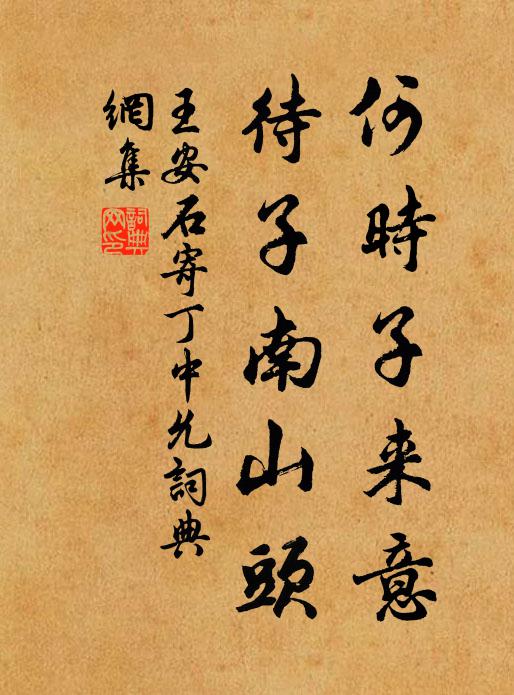 何時子来意
待子南山頭
王安石寄丁中允詞典
網集
詞典
网印